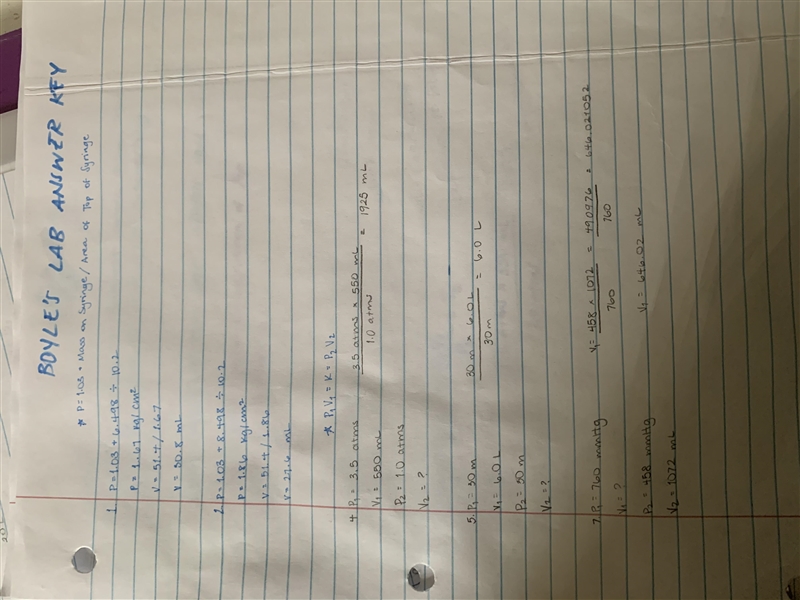 BOYLE'S LAB ANSWER KEY
* P = 1.03 + Mass on Syringe / Area of Top of Syringe
1. P = 1.03 + 6.498 ÷ 10.2
P = 1.67 kg/cm²
V = 51.4 / 1.67
V = 30.8 mL
2. P = 1.03 + 8.498 ÷ 10.2
P = 1.86 kg/cm²
V = 51.4 / 1.86
V = 27.6 mL
* P₁V₁ = K = P₂V₂
4. P₁ = 3.5 atms
V₁ = 550 mL
P₂ = 1.0 atms
V₂ = ?
3.5 atms × 550 mL / 1.0 atms = 1925 mL
5. P₁ = 30 m
V₁ = 6.0 L
P₂ = 30 m
V₂ = ?
30 m × 6.0 L / 30 m = 6.0 L
7. P₁ = 760 mmHg
V₁ = ?
P₂ = 458 mmHg
V₂ = 1072 mL
V₁ = 458 × 1072 / 760 = 490976 / 760 = 646.021052
V₁ = 646.02 mL